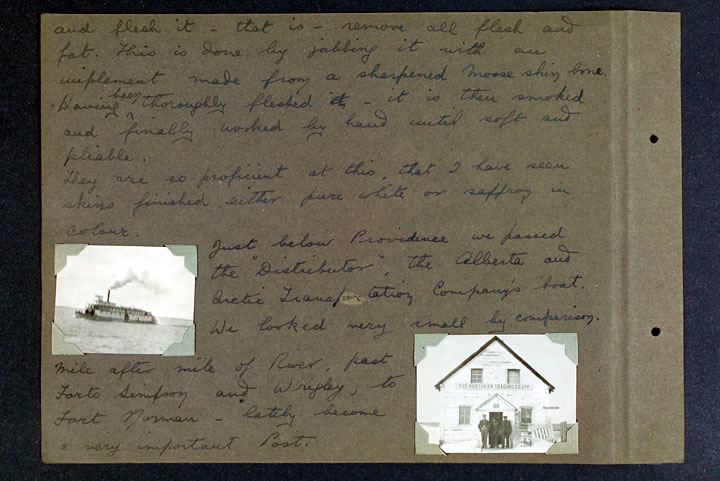 and flesh it - that is - remove all flesh and
fat. This is done by jabbing it with an
implement made from a sharpened Moose shin bone.
Having been thoroughly fleshed it, - it is then smoked
and finally worked by hand until soft and
pliable.
They are so proficient at this, that I have seen
skins finished either pure white or saffron in
colour.
Just below Providence we passed
the "Distributor", the Alberta and
Arctic Transportation Company's boat.
We looked very small by comparison.
Mile after mile of River, past
Forts Simpson and Wrigley, to
Fort Norman - lately become
a very important Post.
THE NORTHERN TRADING CO. LTD.